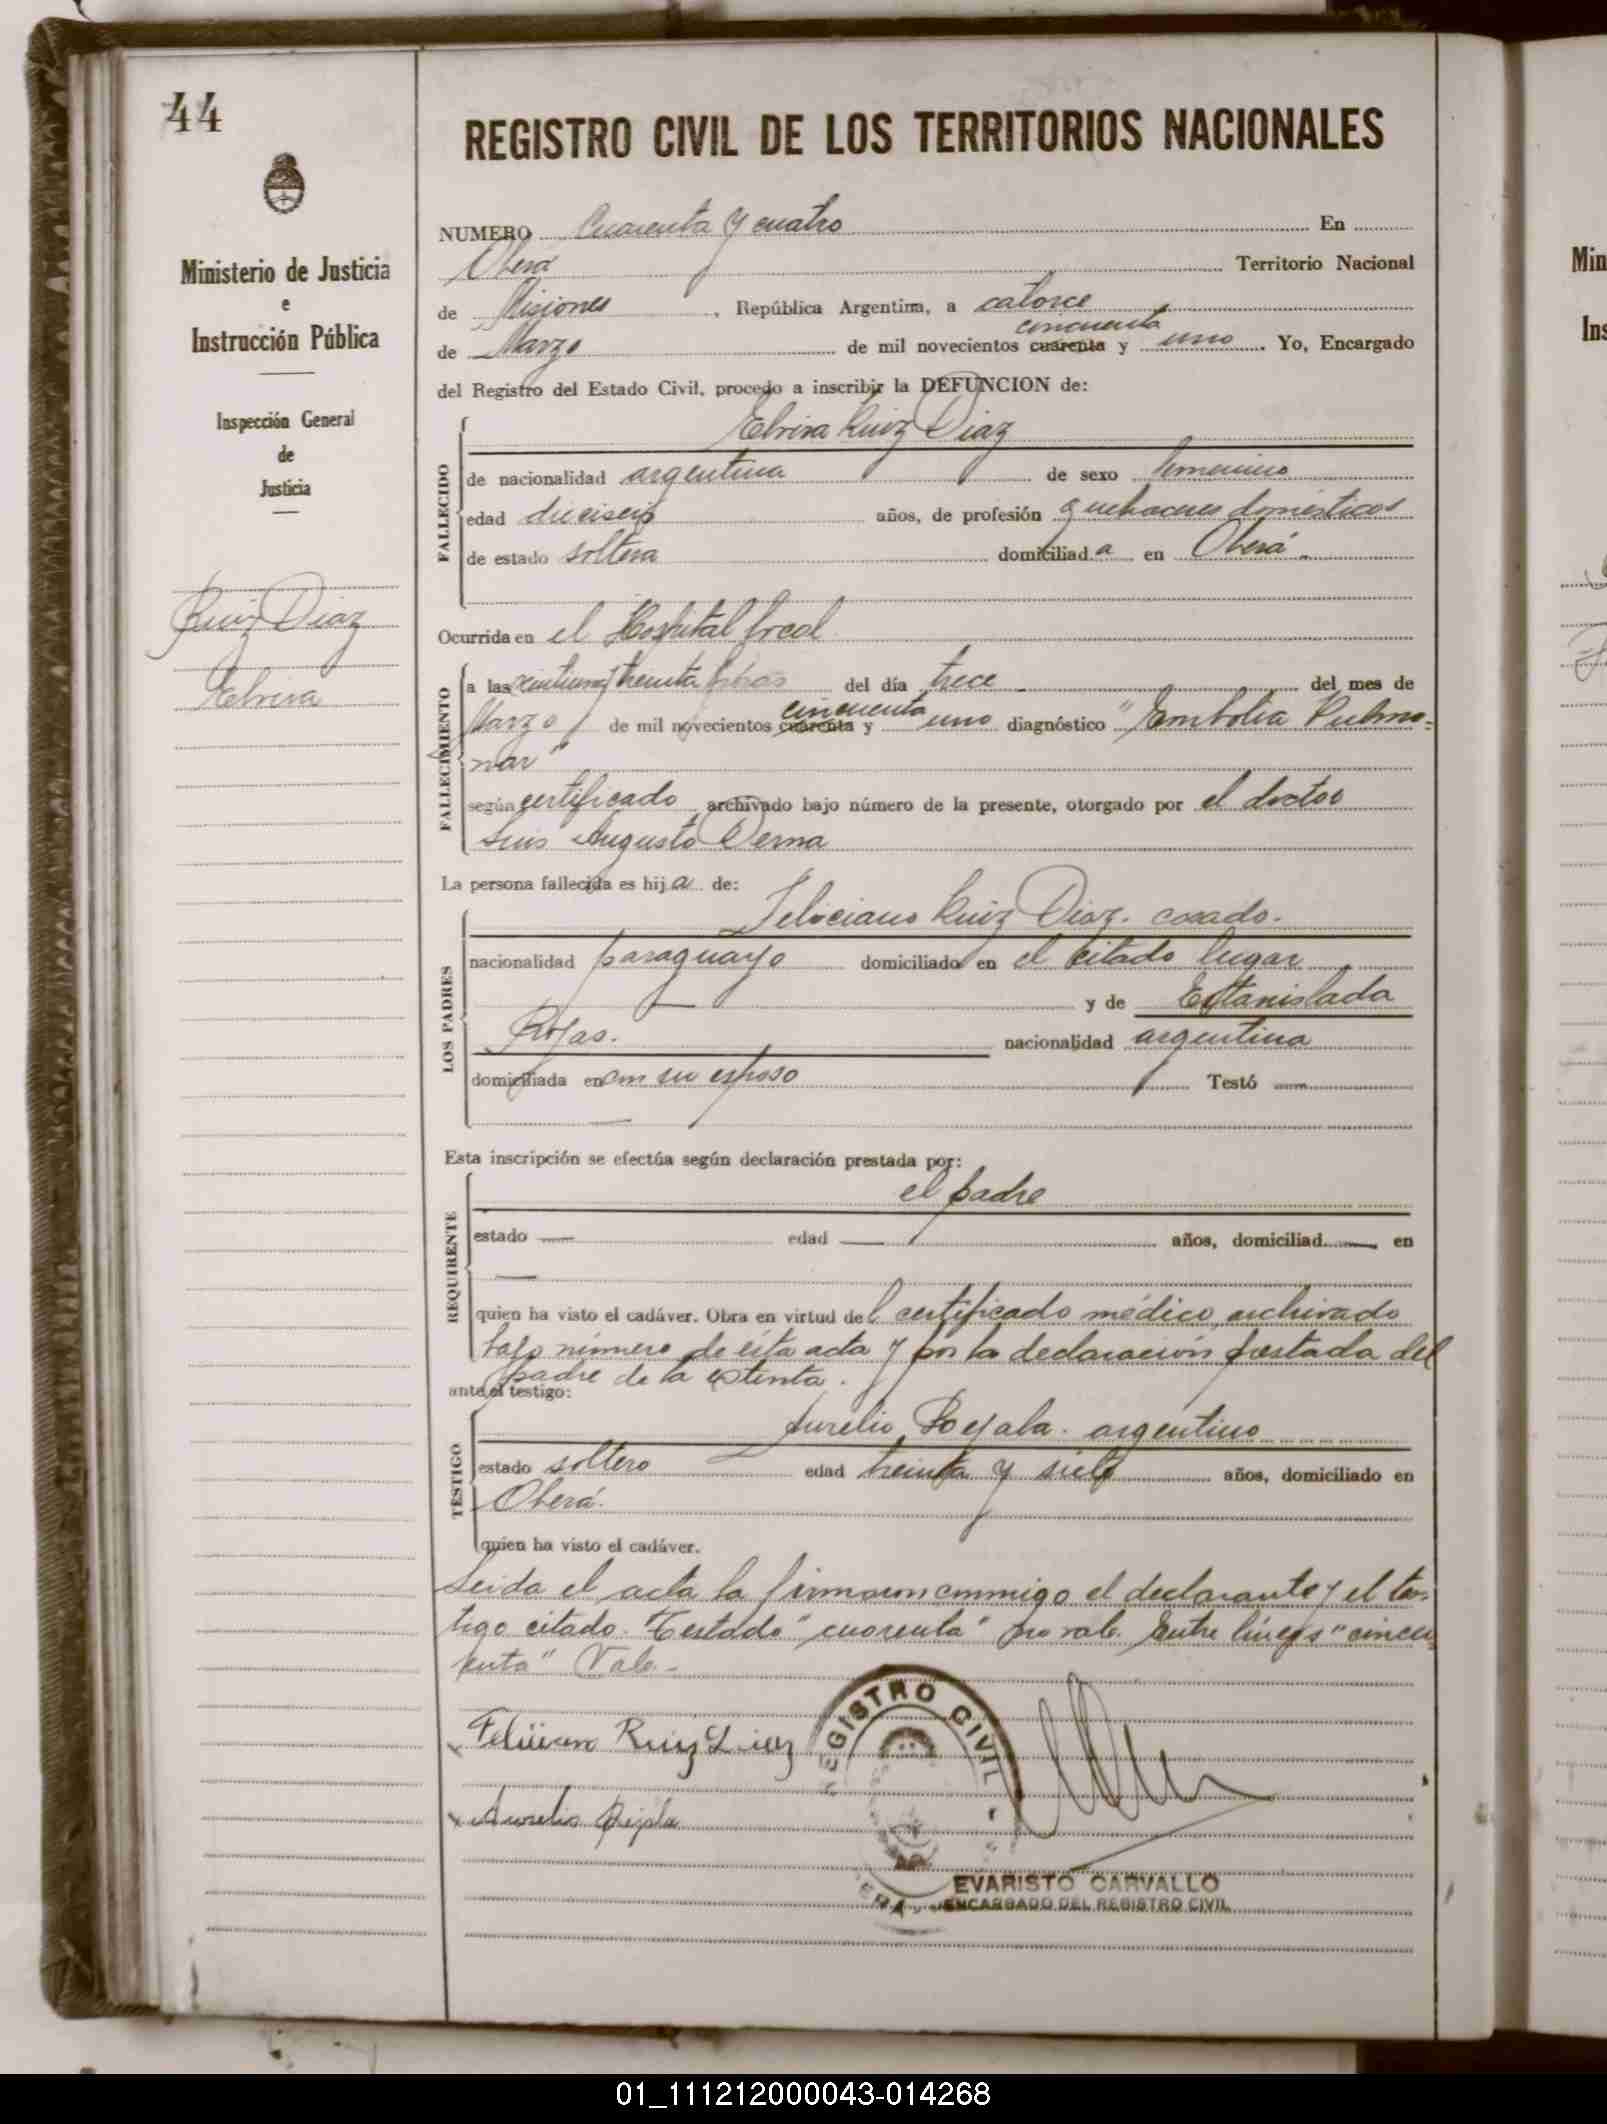 44
REGISTRO CIVIL DE LOS TERRITORIOS NACIONALES
Ministerio de Justicia
e
Instrucción Pública
Inspección General
de
Justicia
Ruiz Diaz
Elvira
NUMERO Cuarenta y cuatro En
Oberá Territorio Nacional
de Misiones, República Argentina, a catorce
cincuenta
de Marzo de mil novecientos cuarenta y uno. Yo, Encargado
del Registro del Estado Civil, procedo a inscribir la DEFUNCION de:
FALLECIDO
Elvira Ruiz Diaz
de nacionalidad argentina de sexo femenino
edad dieciseis años, de profesión quehaceres domésticos
de estado soltera domiciliada en Oberá.
Ocurrida en el Hospital local
FALLECIMIENTO
a las treinta horas del día trece del mes de
cincuenta
Marzo de mil novecientos cuarenta y uno diagnóstico "Embolia Pulmo-
nar"
según certificado archivado bajo número de la presente, otorgado por el doctor
Luis Augusto Derna
La persona fallecida es hija de:
LOS PADRES
Feliciano Ruiz Diaz. casado.
nacionalidad paraguayo domiciliado en el citado lugar
y de Estanislada
Rojas. nacionalidad argentina
domiciliada en con su esposo Testó
Esta inscripción se efectúa según declaración prestada por:
REQUIRENTE
el padre
estado — edad — años, domiciliad — en
—
quien ha visto el cadáver. Obra en virtud del certificado médico, archivado
bajo número de ésta acta y por la declaración prestada del
padre de la extinta.
ante el testigo:
TESTIGO
Aurelio argentino
estado soltero edad treinta y siete años, domiciliado en
Oberá.
quien ha visto el cadáver.
Leida el acta la firmaron conmigo el declarante y el tes-
tigo citado. Testado "cuarenta" no vale. Entre líneas "cincu
enta" Vale.-
Ruiz Diaz
Aurelio
REGISTRO CIVIL
OBERA
EVARISTO CARVALLO
ENCARGADO DEL REGISTRO CIVIL
01_111212000043-014268